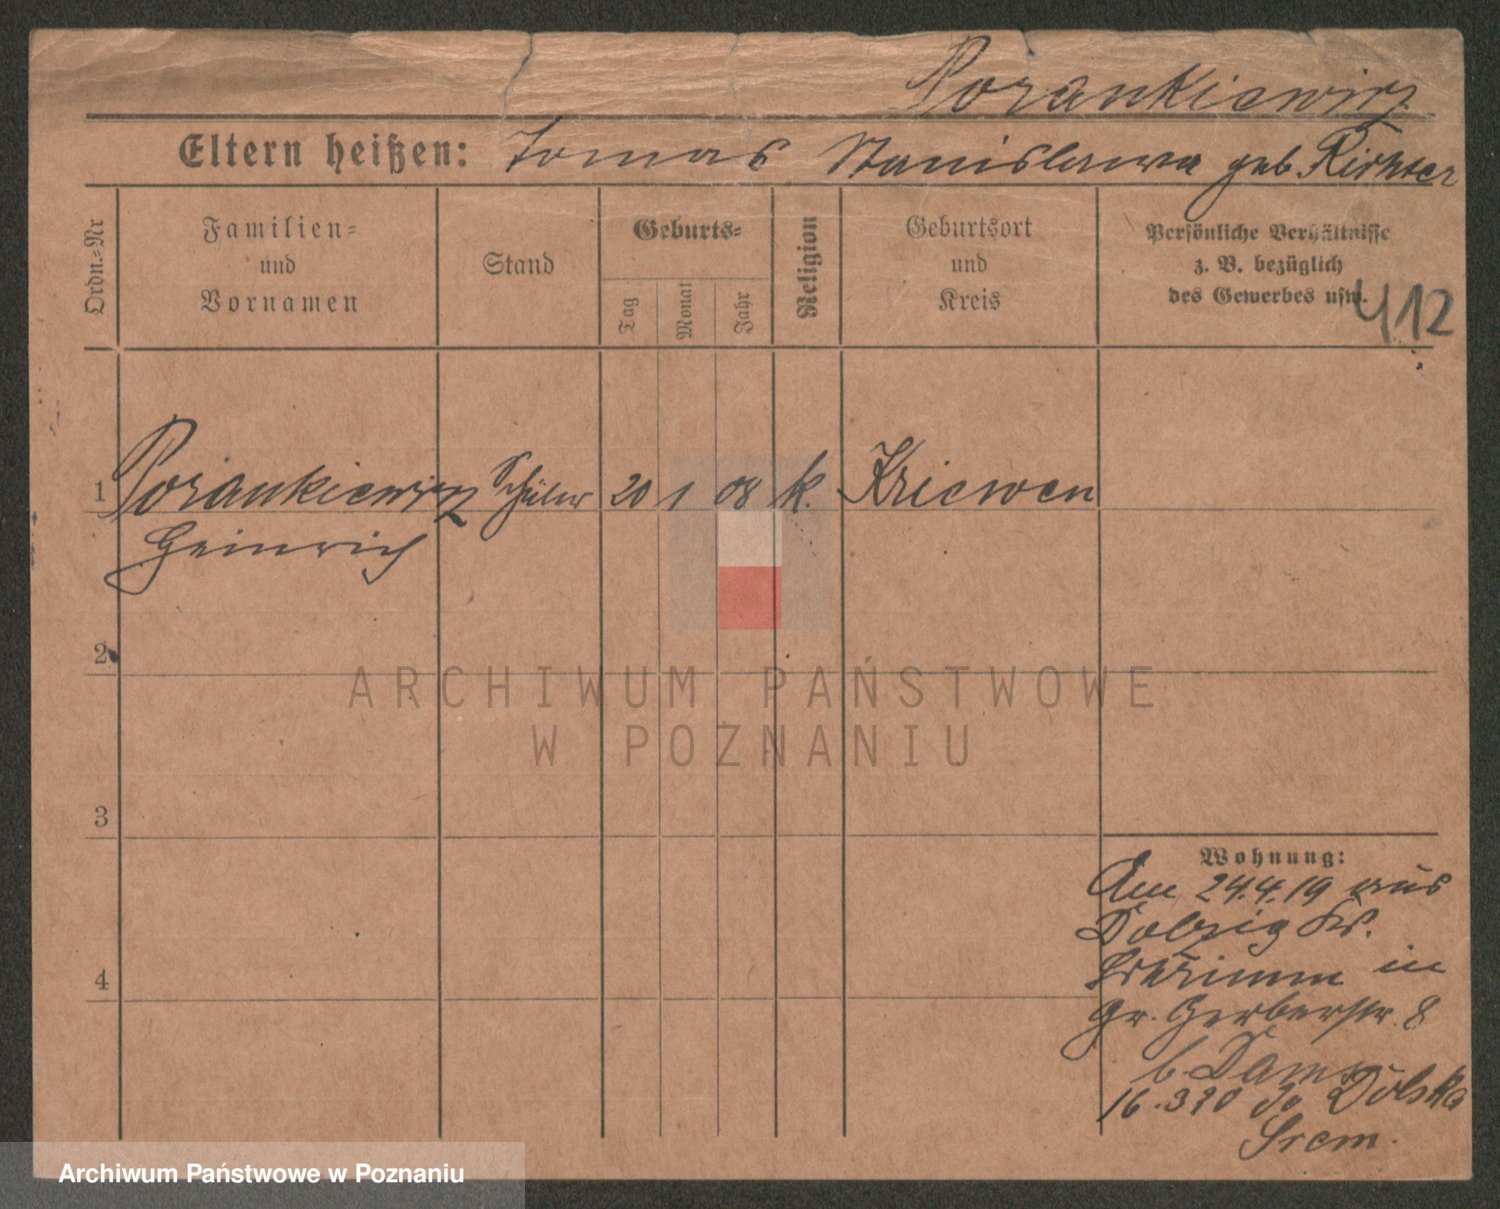 Porankiewicz
Eltern heißen: Tomas Stanislawa geb. Richter
Ordn.-Nr
Familien-
und
Vornamen
Stand
Geburts-
Tag
Monat
Jahr
Religion
Geburtsort
und
Kreis
Persönliche Verhältnisse
z. B. bezüglich
des Gewerbes usw.
412
1 Porankiewicz Schüler 20 1 08 k. Kriewen
Heinrich
2
3
4
Wohnung:
Am 24.4.19 aus
Dolzig Kr.
Schrimm in
Gr. Gerberstr. 8
b. Dams
16.3 20 do Dolska
Srem.
ARCHIWUM PAŃSTWOWE
W POZNANIU
Archiwum Państwowe w Poznaniu